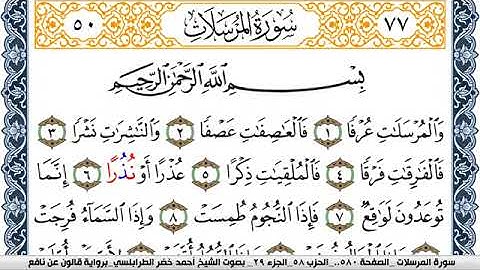 ٧٧ سُورَةُ الْمُرْسَلَاتِ ٥٠
بِسْمِ اللَّهِ الرَّحْمَٰنِ الرَّحِيمِ
وَالْمُرْسَلَٰتِ عُرْفًا ١ فَالْعَٰصِفَٰتِ عَصْفًا ٢ وَالنَّٰشِرَٰتِ نَشْرًا ٣
فَالْفَٰرِقَٰتِ فَرْقًا ٤ فَالْمُلْقِيَٰتِ ذِكْرًا ٥ عُذْرًا أَوْ نُذُرًا ٦ إِنَّمَا
تُوعَدُونَ لَوَٰقِعٌ ٧ فَإِذَا النُّجُومُ طُمِسَتْ ٨ وَإِذَا السَّمَآءُ فُرِجَتْ
سورة المرسلات _الصفحة ٥٨٠_.. الحزب ٥٨_الجزء ٢٩ _ بصوت الشيخ أحمد خضر الطرابلسي _برواية قالون عن نافع